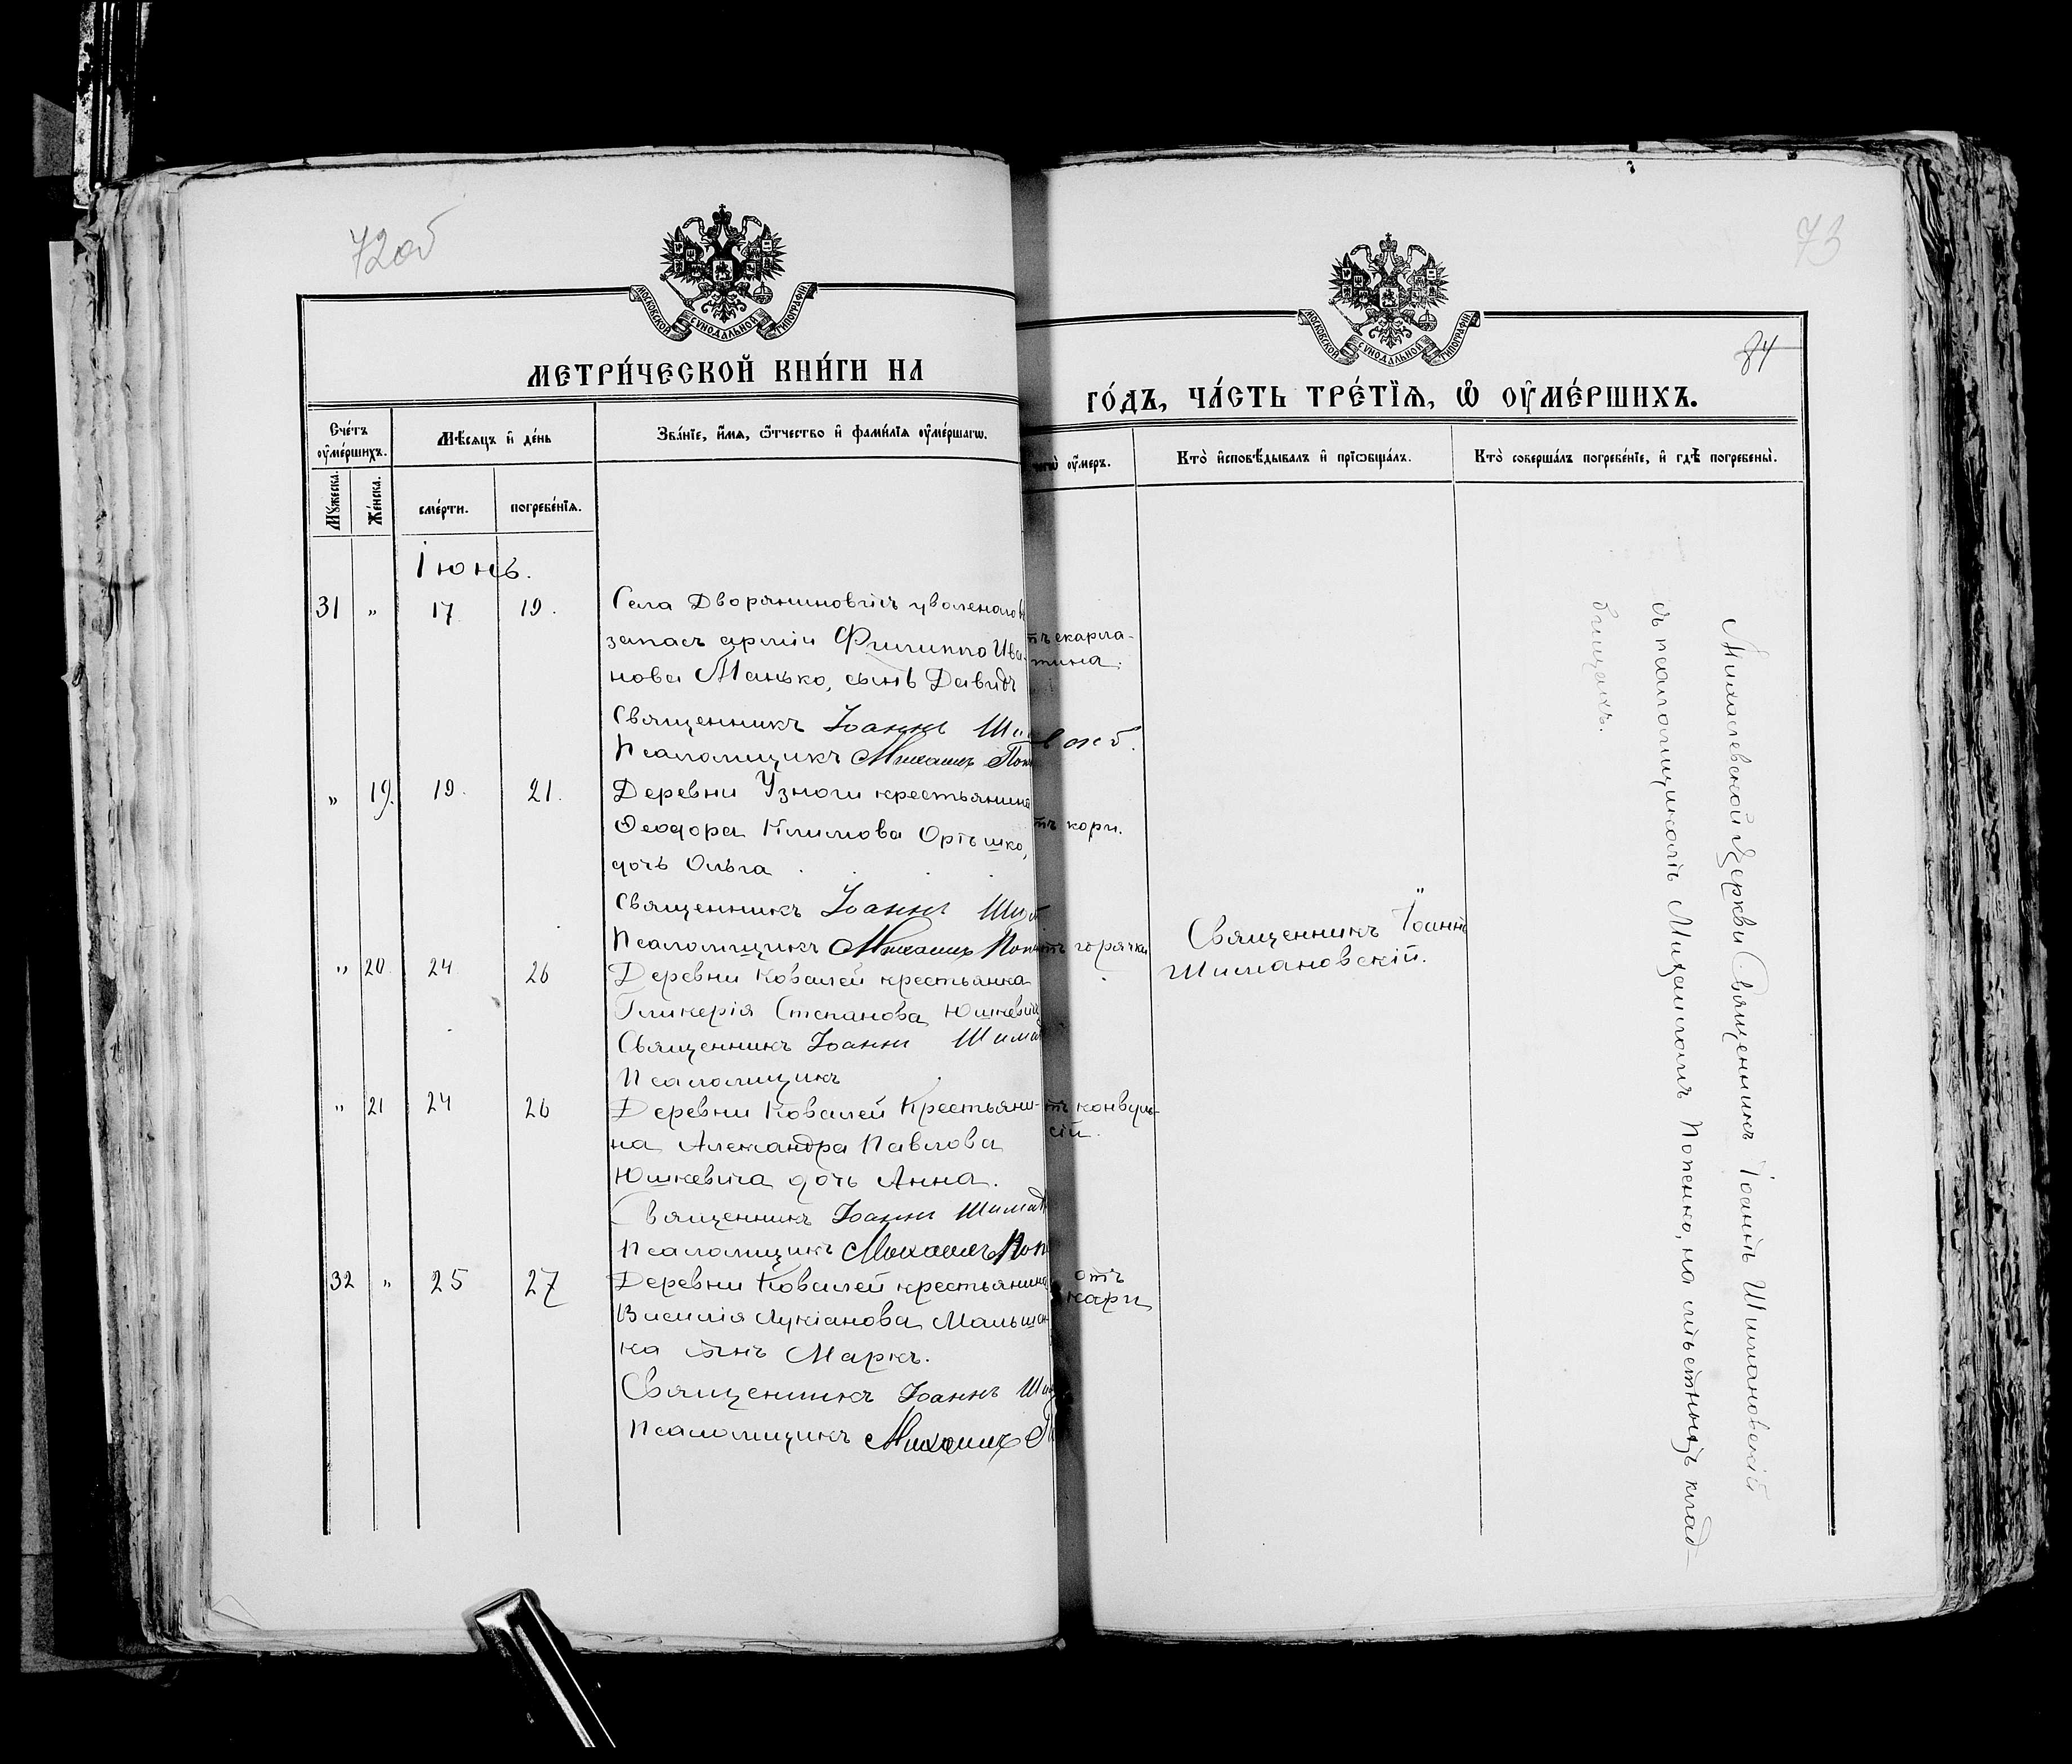 72 об
МОСКОВСКОЙ СѴНОДАЛЬНОЙ ТИПОГРАФІИ
МЕТРИ́ЧЕСКОЙ КНИ́ГИ НА
Сче́тъ
оу҆ме́ршихъ.
Мѣ́сяцъ и҆ де́нь
Зва́нїе, и҆́мя, ѻ҆́тчество и҆ фами́лїя оу҆ме́ршагѡ.
Мꙋ́жеска.
Же́нска.
сме́рти.
погребе́нїя.
Іюнь.
31 " 17 19.
Села Дворяниновичъ уволенаго въ
запасъ арміи Филиппа Ива-
нова Манько, сынъ Давидъ
Священникъ Іоаннъ
Псаломщикъ Михаилъ
" 19. 19. 21.
Деревни Узноги крестьянина
Ѳеодора Климова Орѣшко,
дочь Ольга
Священникъ Іоаннъ
Псаломщикъ Михаилъ
" 20. 24 26
Деревни Ковалей крестьянка
Гликерія Степанова Юшкевичъ
Священникъ Іоаннъ
Псаломщикъ
" 21 24 26
Деревни Ковалей Крестьяни-
на Александра Павлова
Юшкевича дочь Анна.
Священникъ Іоаннъ
Псаломщикъ Михаилъ
32 " 25 27
Деревни Ковалей крестьянина
Василія Лукіанова
ка сынъ Маркъ.
Священникъ Іоаннъ
Псаломщикъ Михаилъ
73
84
МОСКОВСКОЙ СѴНОДАЛЬНОЙ ТИПОГРАФІИ
ГО́ДЪ, ЧА́СТЬ ТРЕ́ТЇѦ, Ѡ҆ ОУ҆МЕ́РШИХЪ.
оу҆́меръ.
Кто̀ и҆сповѣ́дывалъ и҆ прїѡбща́лъ.
Кто̀ соверша́лъ погребе́нїе, и҆ гдѣ̀ погребены̀.
скарла-
тина.
кори.
горячки
конвуль-
сій.
отъ
кори
Священникъ Іоаннъ
Шимановскій.
Михалевской Церкви Священникъ Іоаннъ Шимановскій
съ псаломщикомъ Михаиломъ Попенко, на мѣстныхъ клад-
бищахъ.